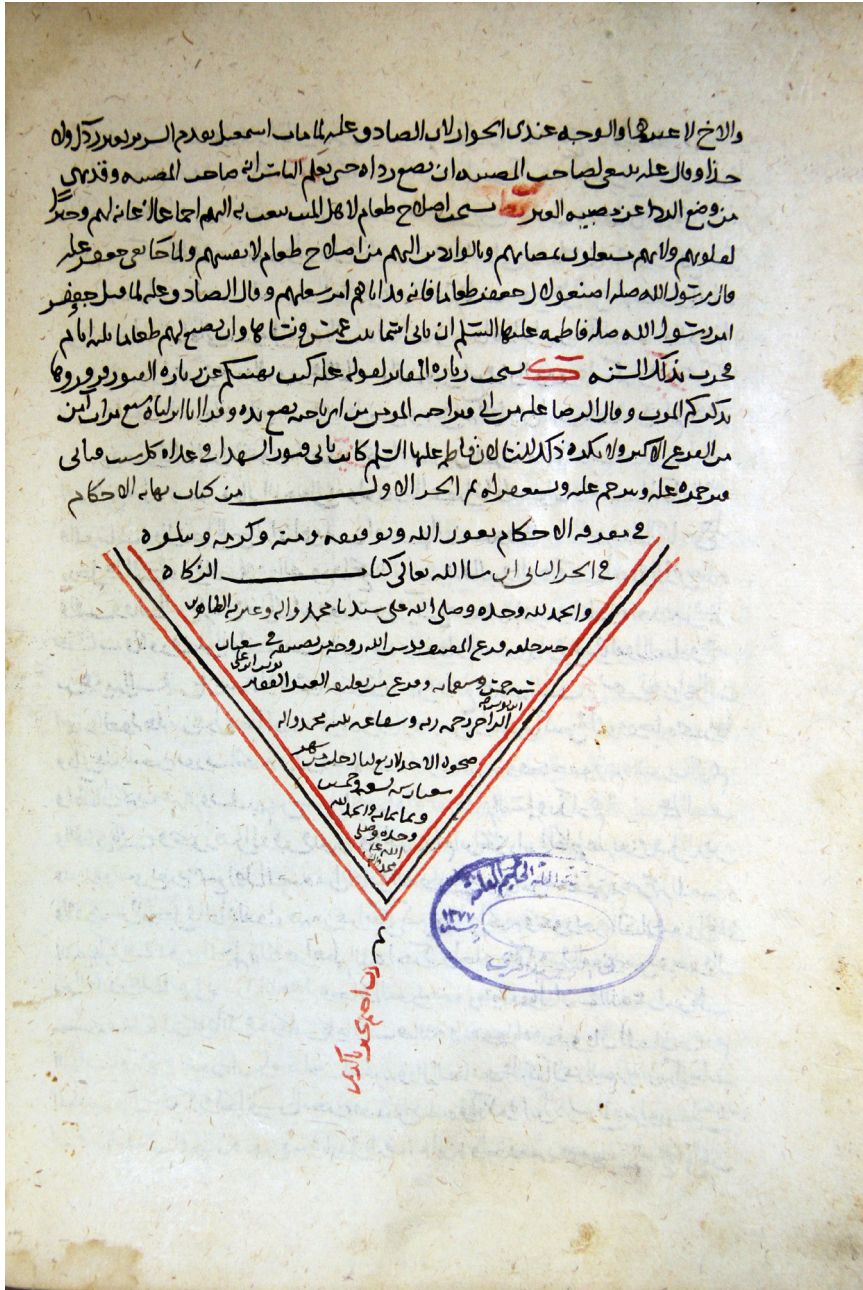 والاخ لا غيرهما والوجه عندي الجواز لان الصادق عليه لما مات اسمعيل تقدم السرير بغير ردآ ولا
حذا وقال عليه ينبغي لصاحب المصيبه ان يضع رداه حتى يعلم الناس انه صاحب المصيبه وقد نهى
من وضع الردا عند مصيبه الغير يستحب اصلاح طعام لاهل الميت يبعث به اليهم اجماعا اعانه لهم وجبرًا
لقلوبهم ولانهم مشغولون بمصابهم وبالواردين اليهم من اصلاح طعام لانفسهم ولما جا نعي جعفر عليه
قال رسول الله صله اصنعوا لال جعفر طعاما فانه قد اتاهم امر شغلهم وقال الصادق عليه لما قتل جعفر
امر رسول الله صله فاطمه عليها السلم ان تاتي اسما بنت عميس ونساها وان تصنع لهم طعاما ثلثه ايام
فجرت بذلك السنه يستحب زياره المقابر لقوله عليه كنت نهيتكم عن زياره القبور فزوروها
تذكركم الموت وقال الرضا عليه من اتى قبر اخيه المومن من اي ناحيه يضع يده وقرا انا انزلناه سبع مرات امن
من الفزع الاكبر ولا يكره ذلك للنسا لان فاطمه عليها السلم كانت تاتي قبور الشهدا في غداه كل سبت فتاتي
قبر حمزه عليه وتترحم عليه وتستغفر له تم الجز الاول من كتاب نهايه الاحكام
في معرفه الاحكام بعون الله وتوفيقه ومنه وكرمه ويتلوه
في الجز الثاني ان شا الله تعالى كتاب الزكاه
والحمد لله وحده وصلى الله على سيدنا محمد واله وعترته الطاهرين
خير خلقه فرغ المصنف قدس الله روحه من تصنيفه في شعبان
سنه خمس وسبعمايه وفرغ من تعليقه العبد الفقير
الراجي رحمه ربه وشفاعه نبيه محمد واله
ضحوه الاحد لاربع ليال خلت من شهر
شعبان سنه تسع وخمسين
وثمانمايه والحمد لله
وحده وصلى
الله على
محمد واله
تم
سنه ١٣٧٧